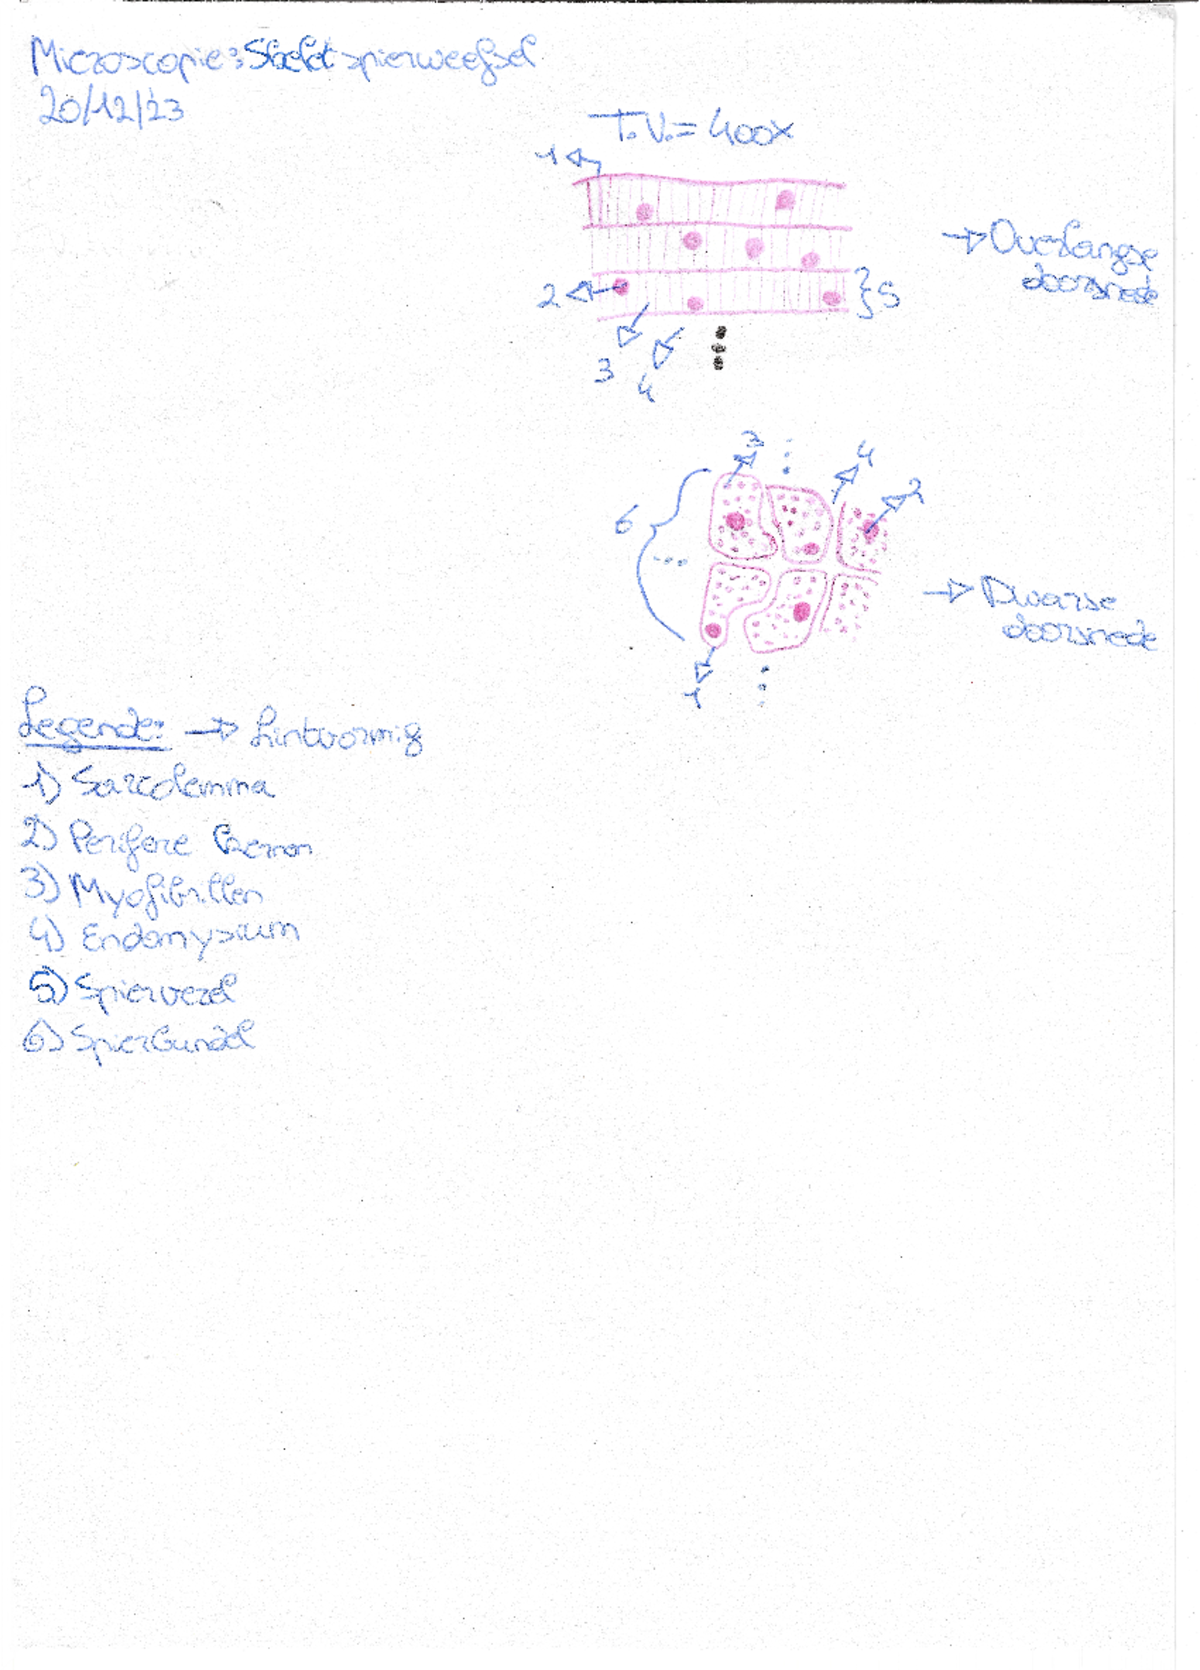 Microscopie: Skeletspierweefsel
20/12/23
T.V. = 400x
1
→ Overlangse
doorsnede
2
5
3
4
3
4
2
6
→ Dwarse
doorsnede
1
Legende: → Lintvormig
1) Sarcolemma
2) Perifere kernen
3) Myofibrillen
4) Endomysium
5) Spiervezel
6) Spierbundel